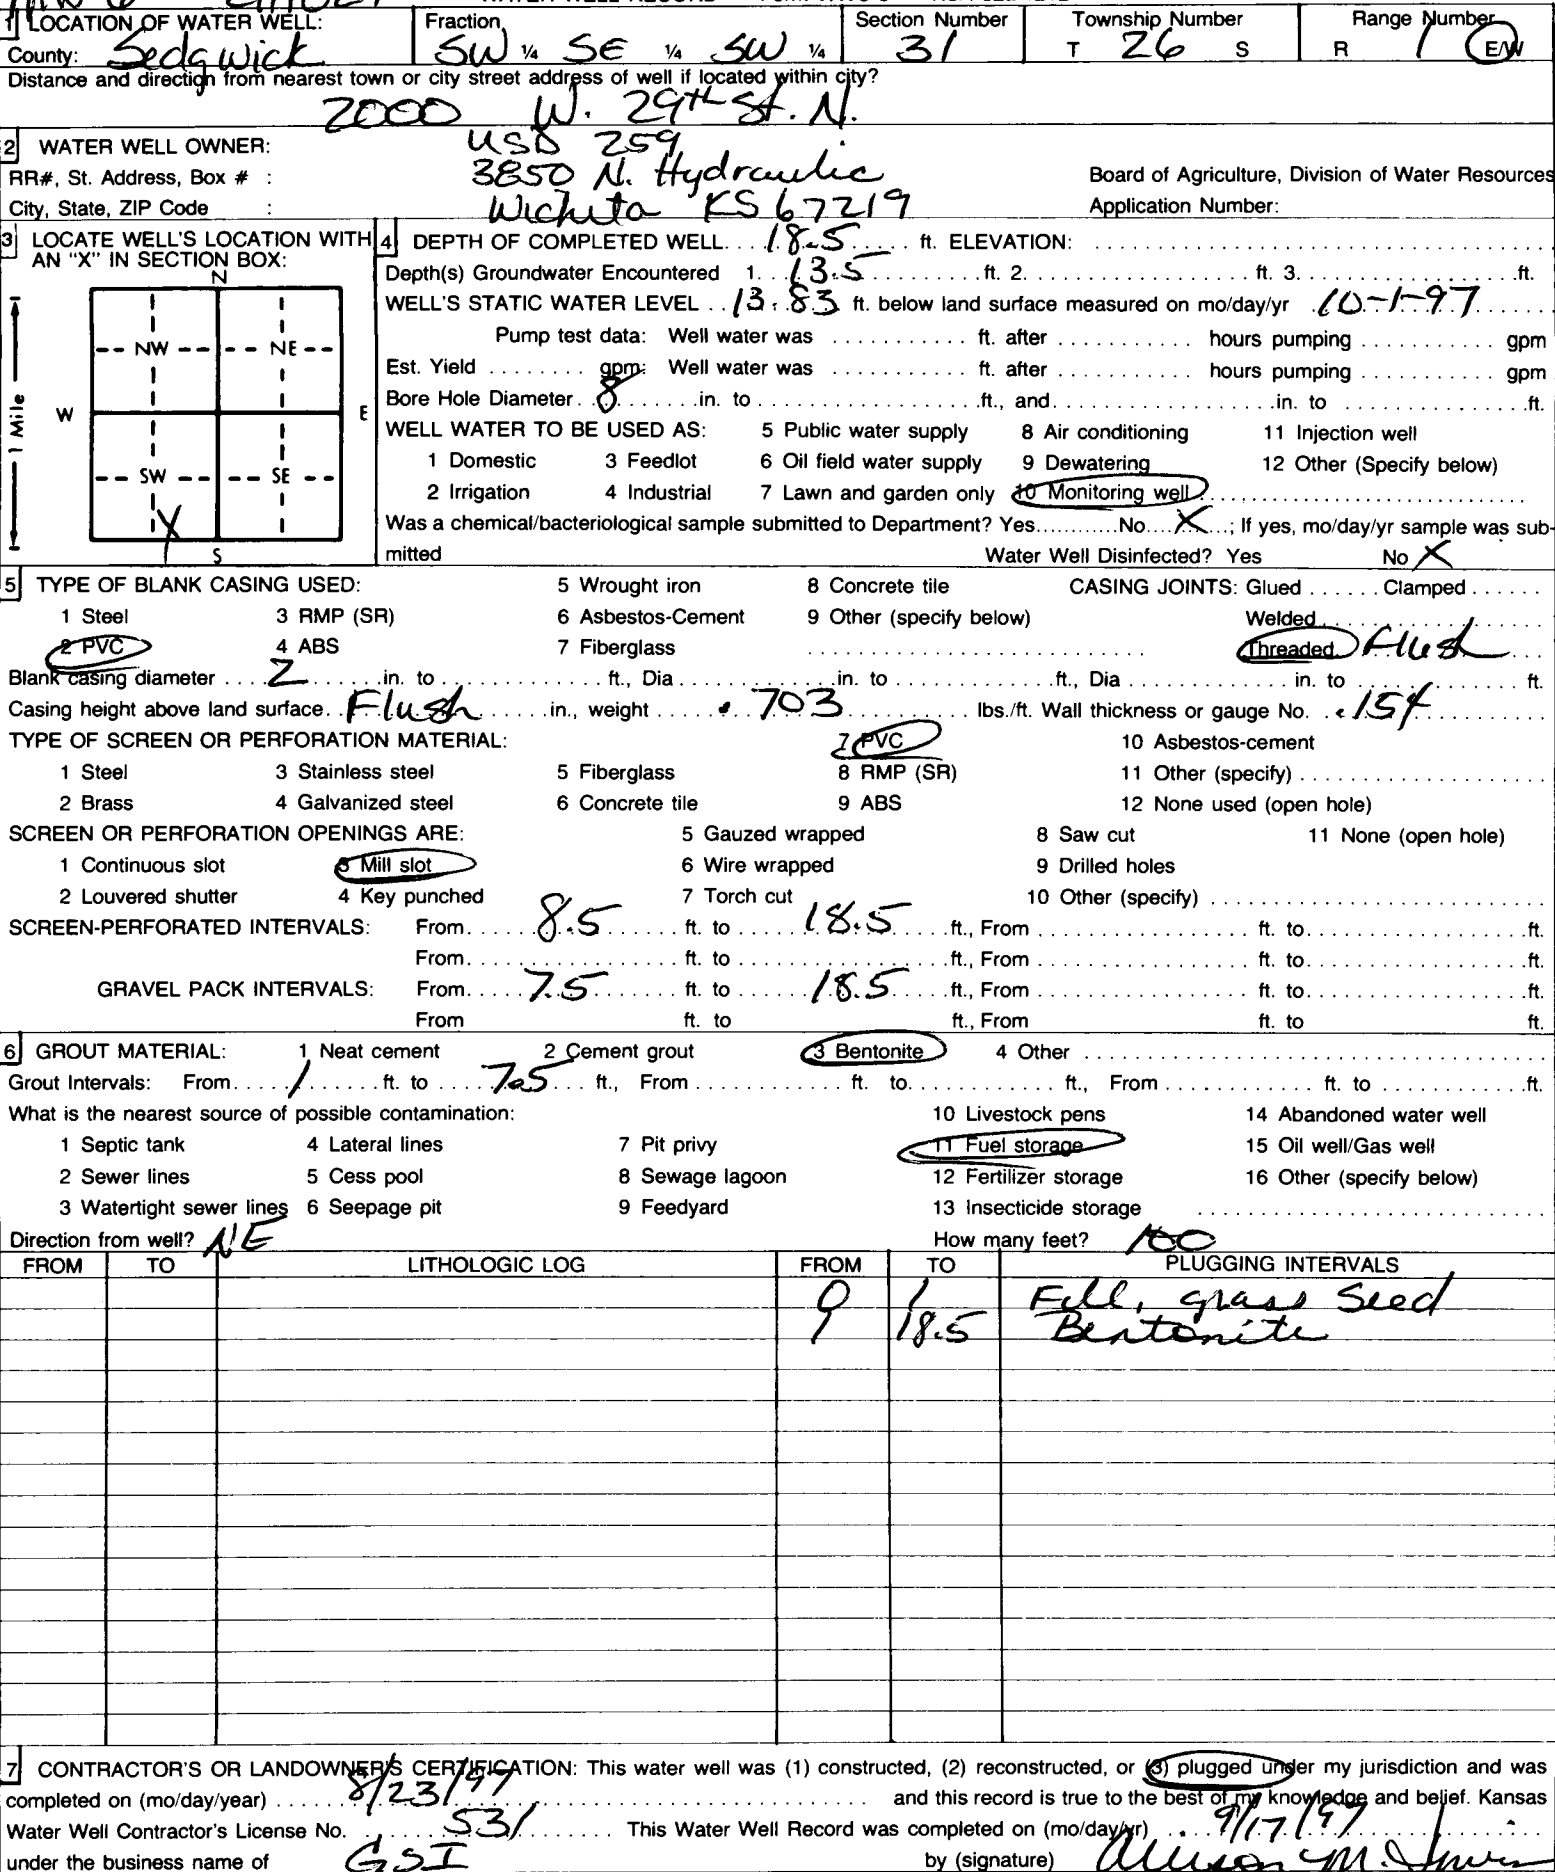 1 LOCATION OF WATER WELL: Fraction Section Number Township Number Range Number
County: Sedgwick SW ¼ SE ¼ SW ¼ 31 T 26 S R 1 E/W
Distance and direction from nearest town or city street address of well if located within city?
2000 W. 29th St. N.
2 WATER WELL OWNER: USD 259
RR#, St. Address, Box # : 3850 N. Hydraulic Board of Agriculture, Division of Water Resources
City, State, ZIP Code : Wichita KS 67219 Application Number:
3 LOCATE WELL'S LOCATION WITH AN "X" IN SECTION BOX:
N
NW NE
W E
SW SE
X
S
1 Mile
4 DEPTH OF COMPLETED WELL 18.5 ft. ELEVATION:
Depth(s) Groundwater Encountered 1. 13.5 ft. 2. ft. 3. ft.
WELL'S STATIC WATER LEVEL 13.83 ft. below land surface measured on mo/day/yr 10-1-97
Pump test data: Well water was ft. after hours pumping gpm
Est. Yield gpm: Well water was ft. after hours pumping gpm
Bore Hole Diameter 8 in. to ft., and in. to ft.
WELL WATER TO BE USED AS: 5 Public water supply 8 Air conditioning 11 Injection well
1 Domestic 3 Feedlot 6 Oil field water supply 9 Dewatering 12 Other (Specify below)
2 Irrigation 4 Industrial 7 Lawn and garden only 10 Monitoring well
Was a chemical/bacteriological sample submitted to Department? Yes No X ; If yes, mo/day/yr sample was sub-
mitted Water Well Disinfected? Yes No X
5 TYPE OF BLANK CASING USED: 5 Wrought iron 8 Concrete tile CASING JOINTS: Glued Clamped
1 Steel 3 RMP (SR) 6 Asbestos-Cement 9 Other (specify below) Welded
2 PVC 4 ABS 7 Fiberglass Threaded Flush
Blank casing diameter 2 in. to ft., Dia in. to ft., Dia in. to ft.
Casing height above land surface Flush in., weight .703 lbs./ft. Wall thickness or gauge No. .154
TYPE OF SCREEN OR PERFORATION MATERIAL: 7 PVC 10 Asbestos-cement
1 Steel 3 Stainless steel 5 Fiberglass 8 RMP (SR) 11 Other (specify)
2 Brass 4 Galvanized steel 6 Concrete tile 9 ABS 12 None used (open hole)
SCREEN OR PERFORATION OPENINGS ARE: 5 Gauzed wrapped 8 Saw cut 11 None (open hole)
1 Continuous slot 3 Mill slot 6 Wire wrapped 9 Drilled holes
2 Louvered shutter 4 Key punched 7 Torch cut 10 Other (specify)
SCREEN-PERFORATED INTERVALS: From 8.5 ft. to 18.5 ft., From ft. to ft.
From ft. to ft., From ft. to ft.
GRAVEL PACK INTERVALS: From 7.5 ft. to 18.5 ft., From ft. to ft.
From ft. to ft., From ft. to ft.
6 GROUT MATERIAL: 1 Neat cement 2 Cement grout 3 Bentonite 4 Other
Grout Intervals: From 1 ft. to 7.5 ft., From ft. to ft., From ft. to ft.
What is the nearest source of possible contamination: 10 Livestock pens 14 Abandoned water well
1 Septic tank 4 Lateral lines 7 Pit privy 11 Fuel storage 15 Oil well/Gas well
2 Sewer lines 5 Cess pool 8 Sewage lagoon 12 Fertilizer storage 16 Other (specify below)
3 Watertight sewer lines 6 Seepage pit 9 Feedyard 13 Insecticide storage
Direction from well? NE How many feet? 100
FROM TO LITHOLOGIC LOG FROM TO PLUGGING INTERVALS
0 1 Fill, grass Seed
1 18.5 Bentonite
7 CONTRACTOR'S OR LANDOWNER'S CERTIFICATION: This water well was (1) constructed, (2) reconstructed, or (3) plugged under my jurisdiction and was
completed on (mo/day/year) 8/23/97 and this record is true to the best of my knowledge and belief. Kansas
Water Well Contractor's License No. 531 This Water Well Record was completed on (mo/day/yr) 9/17/97
under the business name of GSI by (signature)